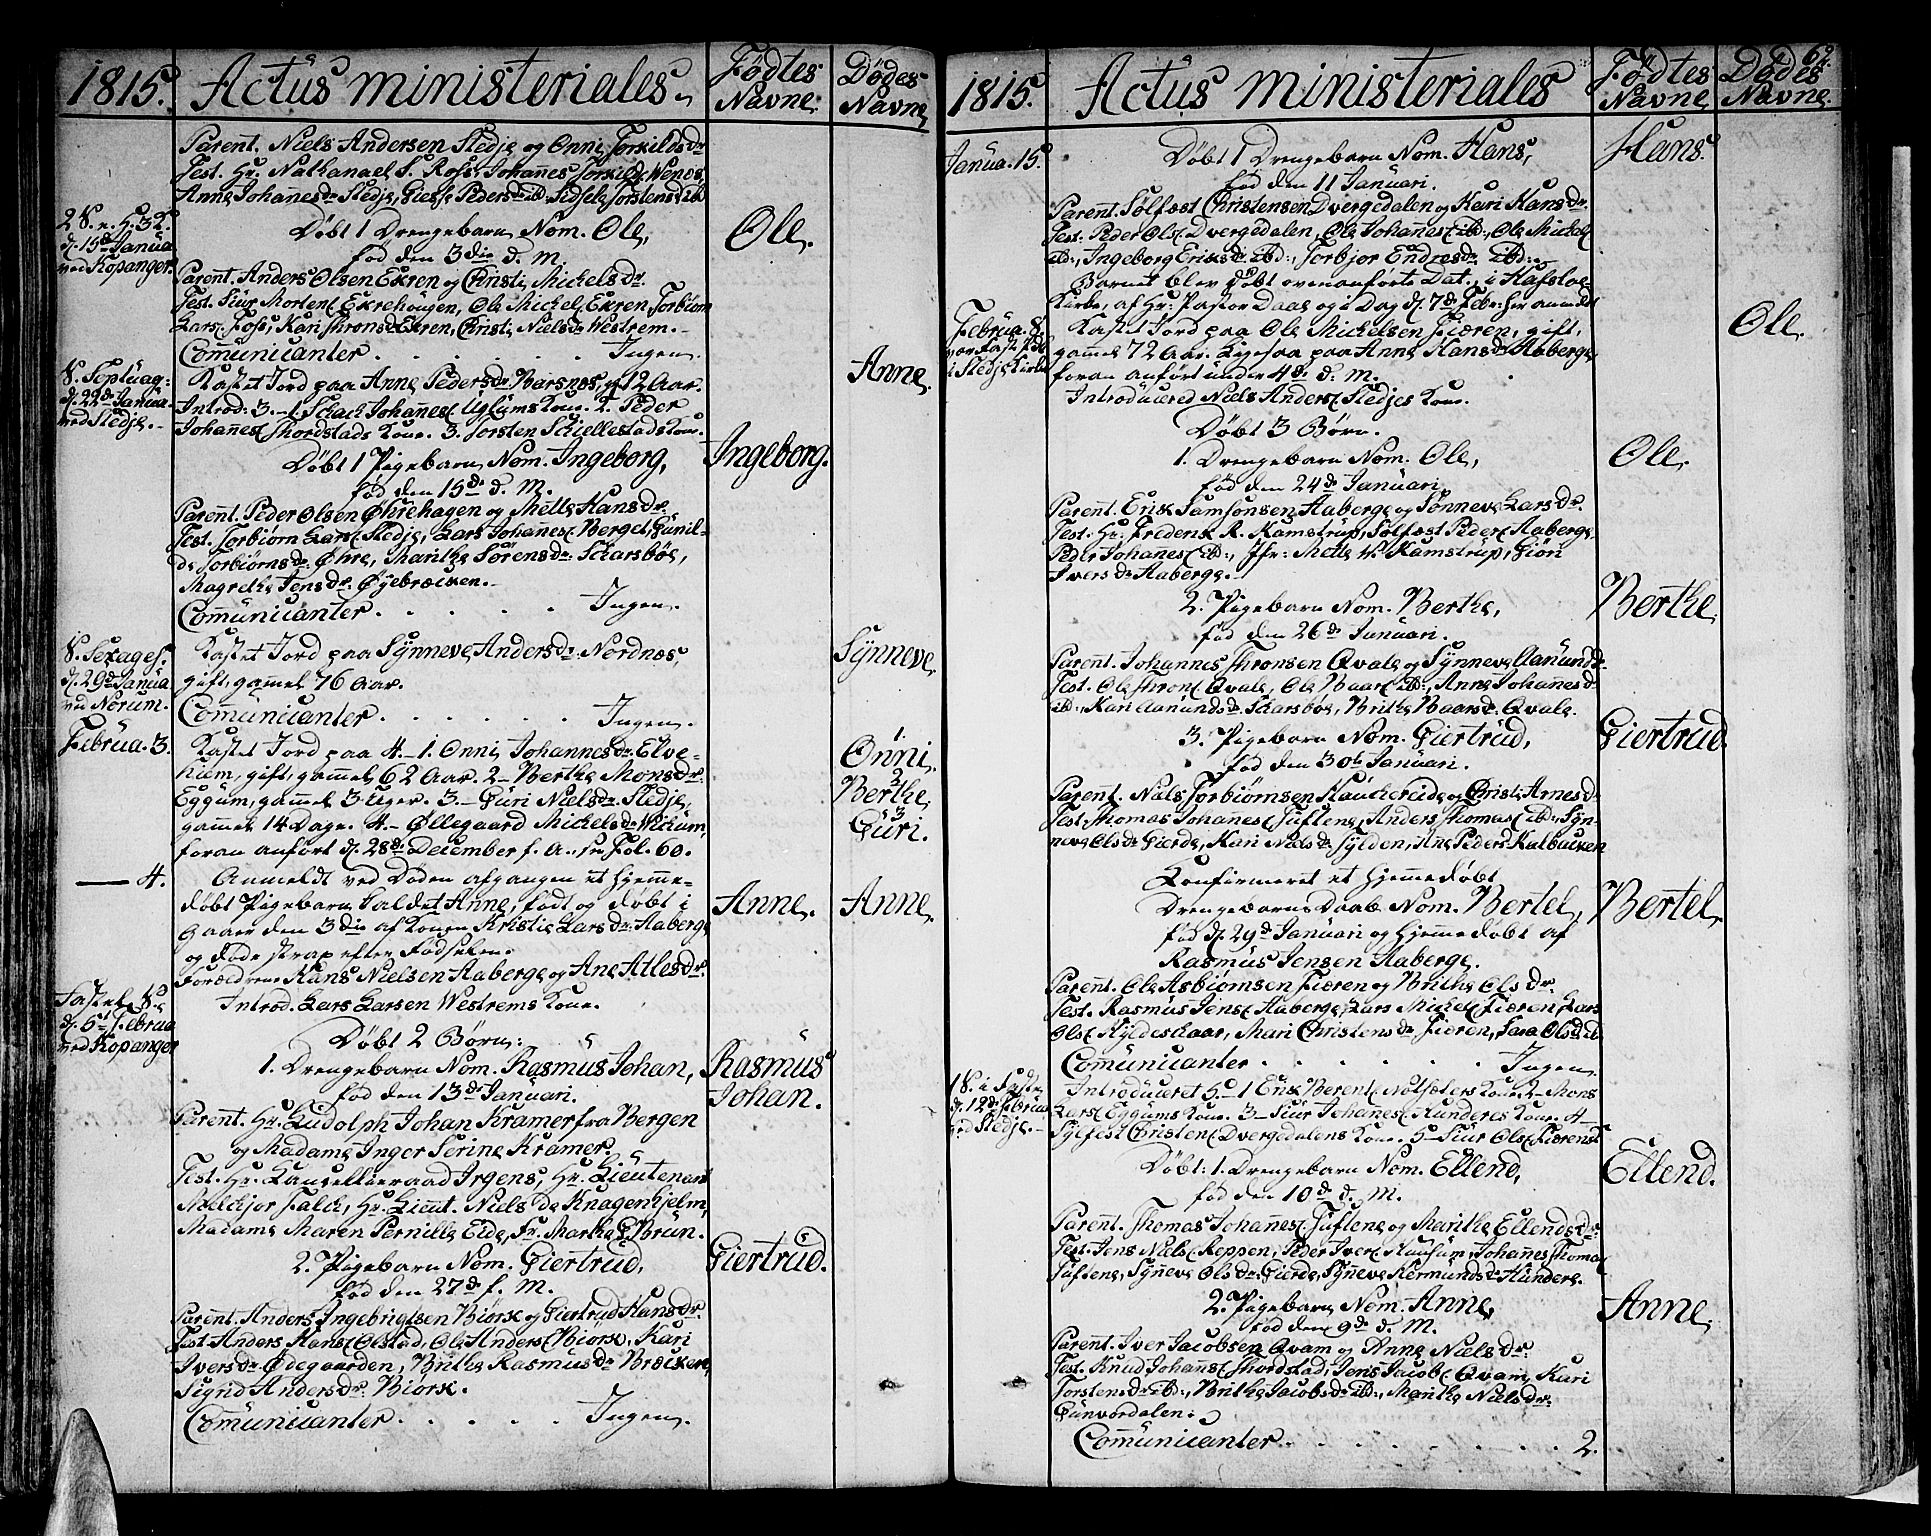 1815. Actus ministeriales. Fødtes Navne. Dødes Navne.
Parent. Niels Andersen Sledje og Onni Torkildsdr
Test. Hr. Nathanael S. Ross, Johannes Torkilds Wenøs,
Anne Johannesdr Sledje, Giesse Pedersdr ibd. Sidsele Torstensdr ibd
2 S. e. H. 3 K. d. 15de Janua. ved Kopanger.
Døbt 1 Drengebarn Nom. Ole, Ole.
fød den 3die d. M.
Parent. Anders Olsen Ekren og Christi Mickelsdr
Test. Siur Mortens. Ekrehougen, Ole Mickels. Ekren, Torbiørn
Lars. Foss, Kari Thronsdr Ekren, Christi Nielsdr Westrem.
Communicanter . . . . . Ingen.
S. Septuag: d. 22de Janua. ved Sledje.
Kastet Jord paa Anne Pedersdr Barsnes, gl 12 Aar. Anne.
Introd: 3. 1. Johannes. Uglums Kone. 2. Peder
Johannes. Thordstads Kone. 3. Torsten Skiellestads Kone.
Døbt 1 Pigebarn Nom. Ingeborg, Ingeborg.
fød den 15de d. M.
Parent. Peder Olsen Øhrehagen og Mette Hansdr
Test. Torbiørn Lars. Sledje, Lars Johannes. Berget, Gunil-
de Torbiørnsdr Øhre, Marithe Sørensdr Skarsbøe,
Magrethe Jensdr Øyebræcken.
Communicanter . . . . . Ingen.
S. Sexages. d. 29de Janua ved Norum.
Kastet Jord paa Synneve Andersdr Nordnæs, Synneve
gift, gammel 76 Aar.
Communicanter . . . . . Ingen.
Februa. 3. Kastet Jord paa 4. 1. Onni Johannesdr Elve- Onni.
hiem, gift, gammel 62 Aar. 2 Berthe Monsdr 2 Berthe,
Eggum, gammel 3 Uger. 3. Guri Nielsdr Sledje, 3 Guri.
gammel 14 Dage. 4. Øllegaard Mickelsdr Wikum,
foran anført d. 28de December f. A. se Fol. 60.
4. Anmeldt ved Døden afgangen et hjemme-
døbt Pigebarn kaldet Anne, født og døbt i Anne. Anne.
Gaar den 3die af Konen Kristie Larsdr Aaberge
og døde strax efter Fødselen.
Forældrene Hans Nielsen Aaberge og Ane Atlesdr.
Fastel. S. d. 5te Februa ved Kopanger
Introd. Lars Larsen Westrems Kone.
Døbt 2 Børn:
1. Drengebarn Nom. Rasmus Johan, Rasmus
fød den 13de Januari. Johan.
Parent. Hr. Ludolph Johan Kramer fra Bergen
og Madame Inger Serine Kramer.
Test. Hr. Kancellieraad Irgens, Hr. Lieutenant
Melchjor Falck, Hr. Lieut. Niels de Knagenhjelm,
Madame Maren Pernille Eide, Fr. Marthe G. Brun.
2. Pigebarn Nom. Giertrud, Giertrud.
fød den 27de f. M.
Parent. Anders Ingebrigtsen Biørk og Giertrud Hansdr
Test. Anders Hans. Olstad, Ole Anders. Biørk, Kari
Iversdr Ødegaarden, Brithe Rasmusdr Bræcken,
Sigrid Andersdr Biørk.
Communicanter . . . . . Ingen.
62.
1815. Actus ministeriales Fødtes Navne Dødes Navne.
Janua. 15. Døbt 1 Drengebarn Nom. Hans, Hans.
fød den 11 Januari.
Parent. Sølfæst Christensen Dvergedalen og Kari Hansdr.
Test. Peder Ols. Dvergedalen, Ole Johannes. ibd., Ole Mickel.
ibd., Ingeborg Eriksdr ibd., Torbjor Endresdr ibd.
Barnet blev døbt ovenanførte Dat. i Hafsloe
Kirke, af Hr. Pastor Daae og i Dag d. 7de Febr. her anmeldt
Februa. 8. i Sledje Kirke
Kastet Jord paa Ole Mickelsen Fiæren, gift, Ole.
gammel 72 Aar. Ligesaa paa Anne Hansdr Aaberge
foran anført under 4de d. M.
Introduceret Niels Anders. Sledjes Kone.
Døbt 3 Børn.
1. Drengebarn Nom. Ole, Ole.
fød den 24de Januari
Parent. Erik Samsonsen Aaberge og Sønneve Larsdr.
Test. Hr. Frederik R. Kamstrup, Sølfæst Peders. Aaberge
Peder Johannes. ibd., Jfr. Mette W. Kamstrup, Giøri
Iversdr Aaberge.
2. Pigebarn Nom. Berthe, Berthe.
fød den 26de Januari.
Parent. Johannes Thronsen Qvale og Synneve Aamundsdr
Test. Ole Throns. Qvale, Ole Baars. ibd., Anne Johannesdr
ibd., Kari Aamundsdr Skarsbøe, Brithe Baarsdr Qvale.
3. Pigebarn Nom. Giertrud, Giertrud.
fød den 30te Januari.
Parent. Niels Torbiørnsen Haukereide og Christi Arnesdr
Test. Thomas Johannes. Tuftene, Anders Thomas. ibd., Syn-
neve Olsdr Gierde, Kari Nielsdr Sylden, Ane Pedersdr Kalbacken
Konfirmeret et hjemmedøbt
Drengebarns Daab Nom. Bertel, Bertel.
fød d. 29de Januari og hjemmedøbt af
Rasmus Jensen Aaberge.
Parent. Ole Asbiørnsen Fiæren og Brithe Olsdr
Test. Rasmus Jens. Aaberge, Lars Mickels. Fiæren, Lars
Ols. Hyldeskaar, Mari Christensdr Fiæren, Sara Olsdr ibd
Communicanter . . . . . Ingen.
1 S. i Faste d. 12de Februa ved Sledje.
Introduceret 5. 1 Erik Berent. Kone. 2 Mons
Lars. Eggums Kone. 3 Siur Johannes. Hunderes Kone. 4
Sylfest Christens. Dvergedalens Kone. 5 Siur Ols. Fiærens
Døbt: 1. Drengebarn Nom. Ellend, Ellend.
fød den 10de d. M.
Parent. Thomas Johannes. Tuftene og Marithe Ellendsdr
Test. Jens Niels. Reppen, Peder Ivers. Johannes Thomas.
Tuftene, Synneve Olsdr Gierde, Synneve Hermundsdr Hundere.
2. Pigebarn Nom. Anne, Anne,
fød den 9de d. M.
Parent. Iver Jacobsen Qvam og Anne Nielsdr
Test. Knud Johannes. Thordstad, Jens Jacobs. Qvam, Kari
Torstensdr ibd., Brithe Jacobsdr ibd., Marithe Nielsdr
Gunvordalen.
Communicanter . . . . . 2.